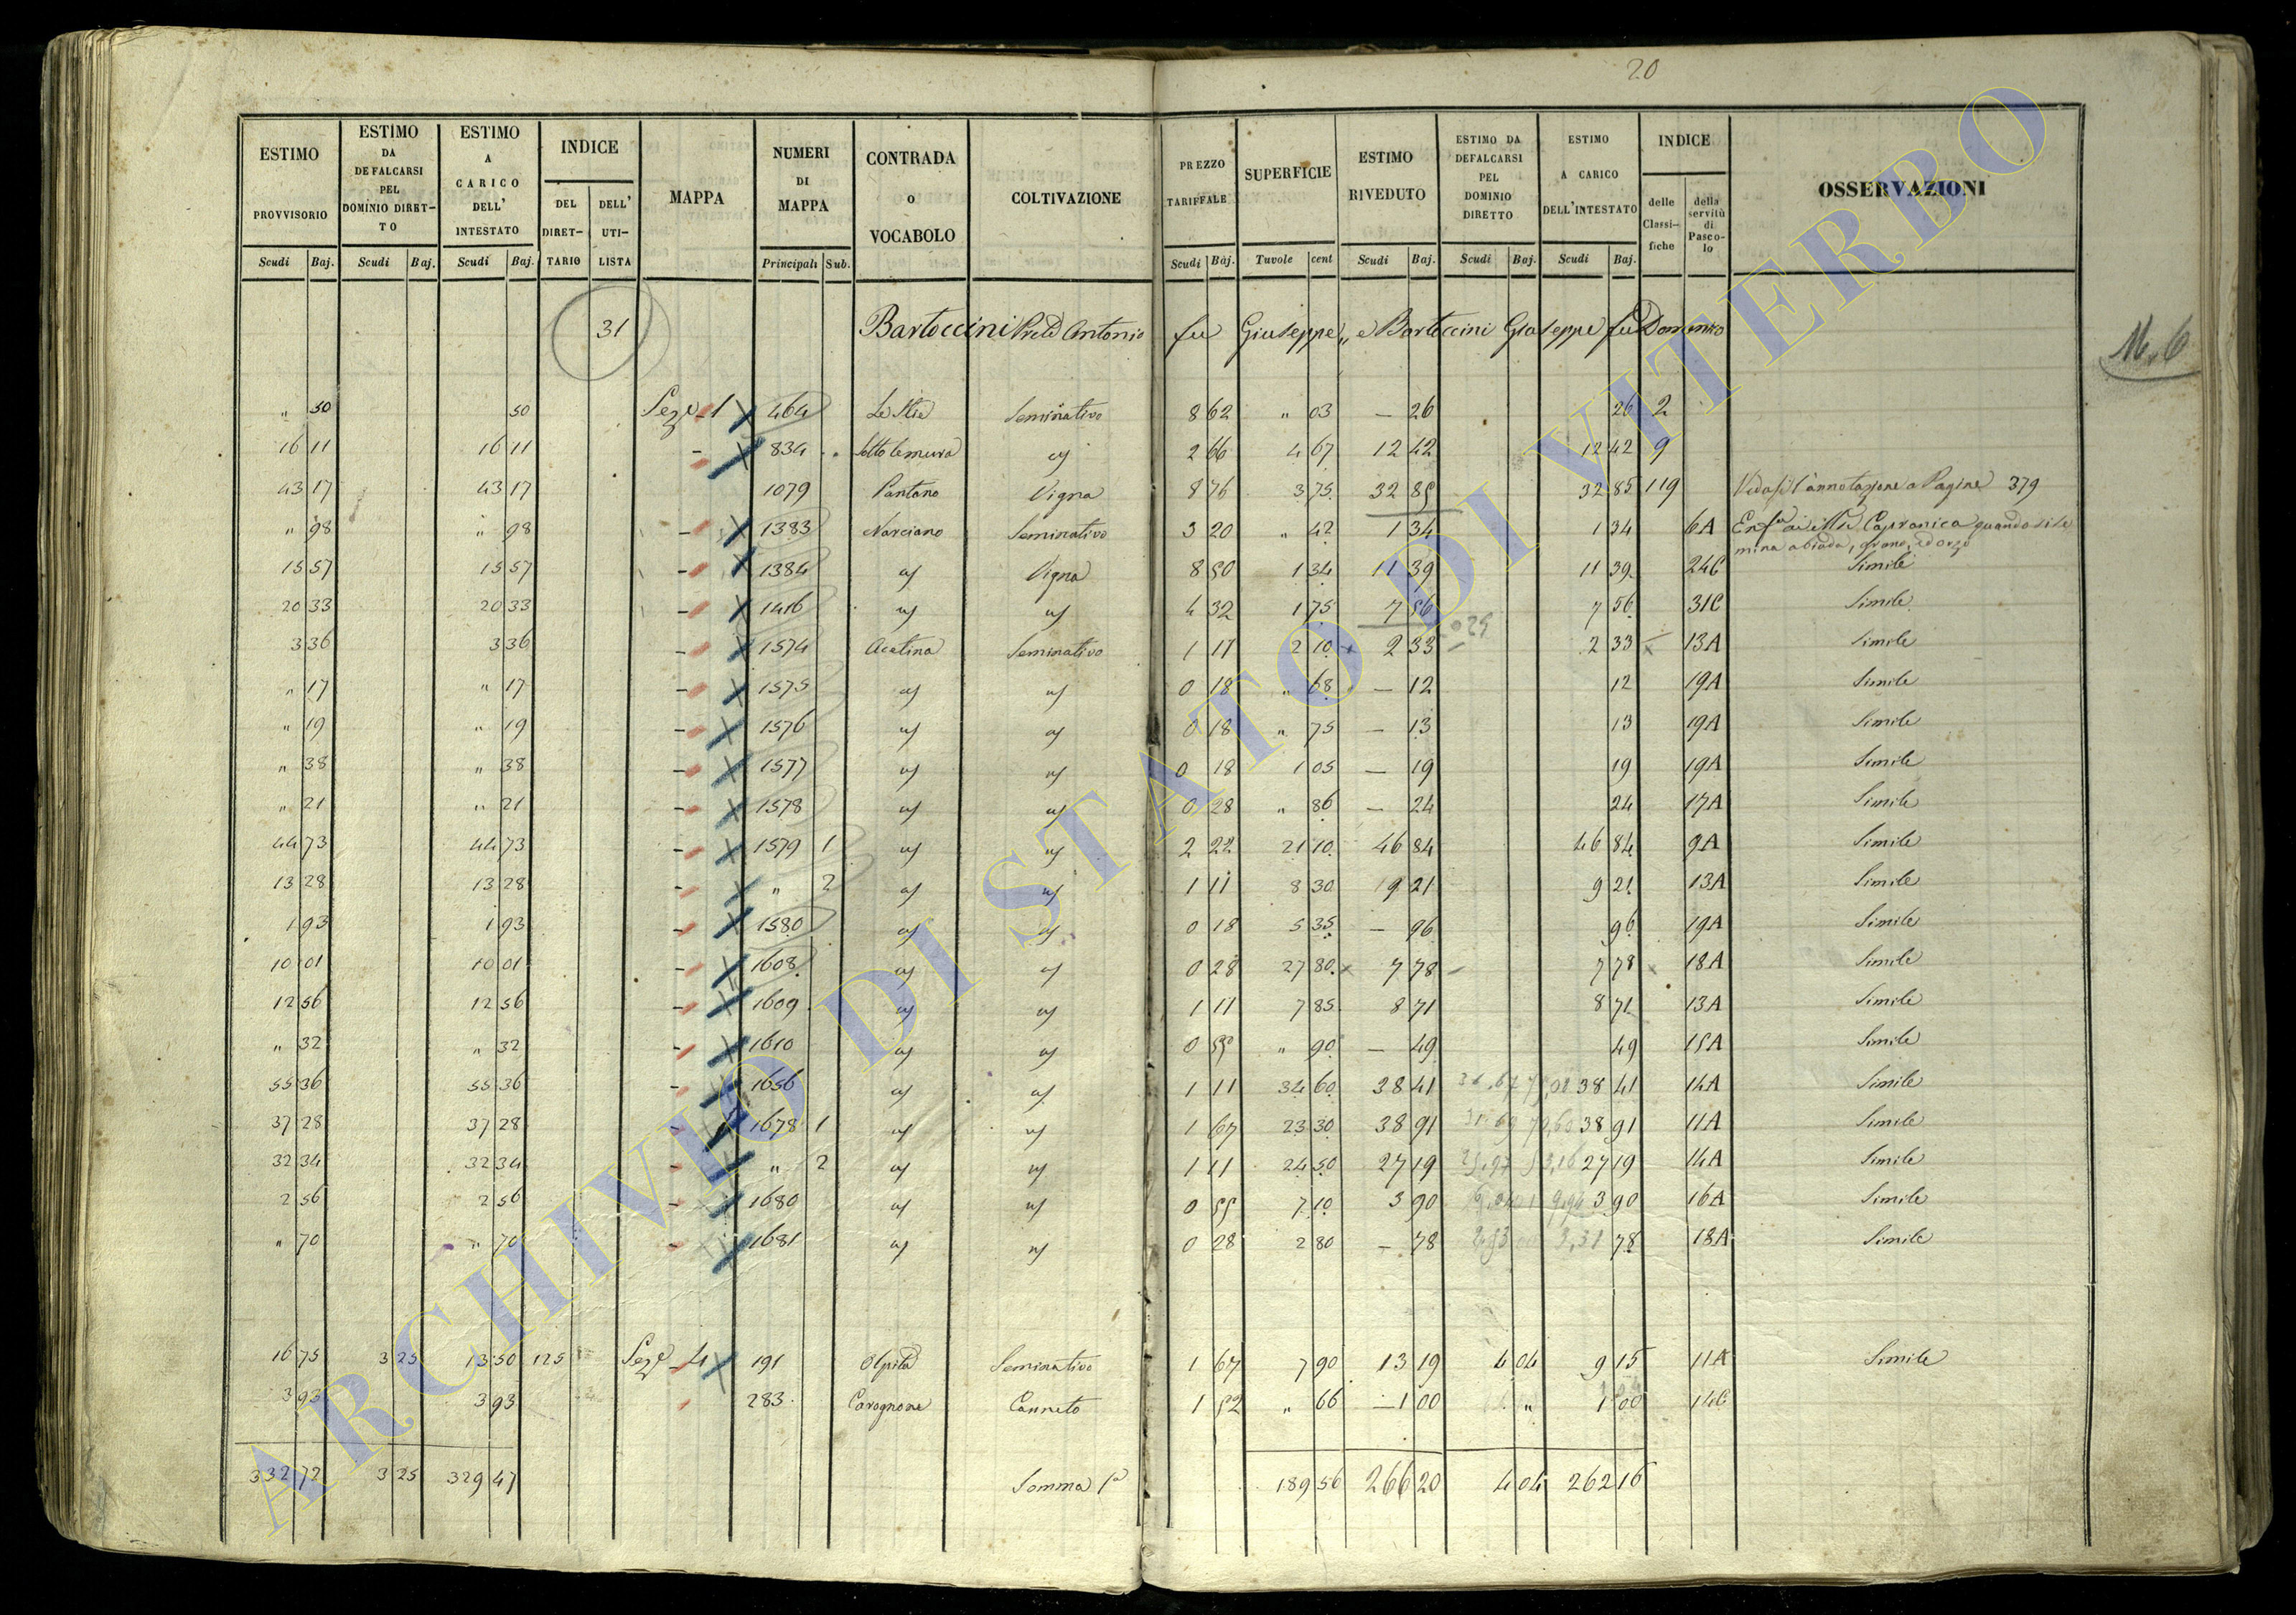 20
ESTIMO PROVVISORIO | ESTIMO DA DEFALCARSI PEL DOMINIO DIRETTO | ESTIMO A CARICO DELL' INTESTATO | INDICE | MAPPA | NUMERI DI MAPPA | CONTRADA O VOCABOLO | COLTIVAZIONE | PREZZO TARIFFALE | SUPERFICIE | ESTIMO RIVEDUTO | ESTIMO DA DEFALCARSI PEL DOMINIO DIRETTO | ESTIMO A CARICO DELL'INTESTATO | INDICE | OSSERVAZIONI
DEL DIRET-TARIO | DELL' UTI-LISTA | delle Classi-fiche | della servitù di Pasco-lo
Scudi | Baj. | Scudi | Baj. | Scudi | Baj. | Principali | Sub. | Scudi | Baj. | Tavole | cent | Scudi | Baj. | Scudi | Baj. | Scudi | Baj.
31 Bartoccini Antonio fu Giuseppe, e Bartoccini Giuseppe fu Domenico
" 50 | 50 | Seze 1 | 464 | Le Stie | Seminativo | 8 62 | " 03 | — 26 | 26 | 2
16 11 | 16 11 | 834 | Sotto le mura | " | 2 66 | 4 67 | 12 42 | 12 42 | 9
43 17 | 43 17 | 1079 | Pantano | Vigna | 8 76 | 3 75 | 32 85 | 32 85 | 119 | Vedasi l'annotazione a Pagine 379
" 98 | " 98 | 1383 | Narciano | Seminativo | 3 20 | " 42 | 1 34 | 1 34 | 6A | Capranica quando si se
mina a biada, grano, ed orzo
15 57 | 15 57 | 1384 | " | Vigna | 8 50 | 1 34 | 11 39 | 11 39 | 24C | Simile
20 33 | 20 33 | 1416 | " | " | 4 32 | 1 75 | 7 56 | 7 56 | 31C | Simile
3 36 | 3 36 | 1574 | Acetina | Seminativo | 1 11 | 2 10 | 2 33 | 2 33 | 13A | Simile
" 17 | " 17 | 1575 | " | " | 0 18 | " 68 | — 12 | 12 | 19A | Simile
" 19 | " 19 | 1576 | " | " | 0 18 | " 75 | — 13 | 13 | 19A | Simile
" 38 | " 38 | 1577 | " | " | 0 18 | 1 05 | — 19 | 19 | 19A | Simile
" 21 | " 21 | 1578 | " | " | 0 28 | " 86 | — 24 | 24 | 17A | Simile
44 73 | 44 73 | 1579 | 1 | " | " | 2 22 | 21 10 | 46 84 | 46 84 | 9A | Simile
13 28 | 13 28 | " | 2 | " | " | 1 11 | 8 30 | 9 21 | 9 21 | 13A | Simile
1 93 | 1 93 | 1580 | " | " | 0 18 | 5 35 | — 96 | 96 | 19A | Simile
10 01 | 10 01 | 1608 | " | " | 0 28 | 27 80 | 7 78 | 7 78 | 18A | Simile
12 56 | 12 56 | 1609 | " | " | 1 11 | 7 85 | 8 71 | 8 71 | 13A | Simile
" 32 | " 32 | 1610 | " | " | 0 55 | " 90 | — 49 | 49 | 15A | Simile
55 36 | 55 36 | 1656 | " | " | 1 11 | 34 60 | 38 41 | 38 41 | 14A | Simile
37 28 | 37 28 | 1678 | 1 | " | " | 1 67 | 23 30 | 38 91 | 38 91 | 11A | Simile
32 34 | 32 34 | " | 2 | " | " | 1 11 | 24 50 | 27 19 | 27 19 | 14A | Simile
2 56 | 2 56 | 1680 | " | " | 0 55 | 7 10 | 3 90 | 3 90 | 16A | Simile
" 70 | " 70 | 1681 | " | " | 0 28 | 2 80 | — 78 | 78 | 18A | Simile
16 75 | 3 25 | 13 50 | 125 | Seze 4 | 191 | Seminativo | 1 67 | 7 90 | 13 19 | 4 04 | 9 15 | 11A | Simile
3 93 | 3 93 | 283 | Carognone | Canneto | 1 52 | " 66 | 1 00 | " | 1 00 | 14C
332 72 | 3 25 | 329 47 | Somma 1a | 189 56 | 266 20 | 4 04 | 262 16
ARCHIVIO DI STATO DI VITERBO